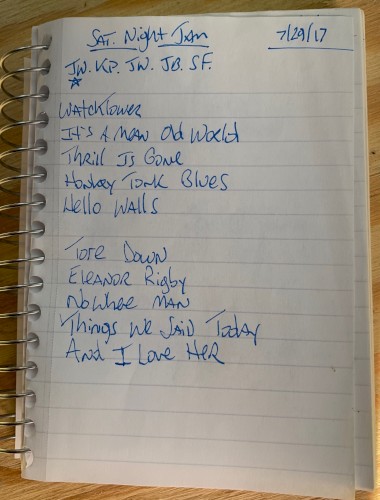 Sat. Night Jam 7/29/17
JW. KP. JW. JB. SF.
Watchtower
It's A Mean Old World
Thrill Is Gone
Honkey Tonk Blues
Hello Walls
Tore Down
Eleanor Rigby
Nowhere Man
Things We Said Today
And I Love Her